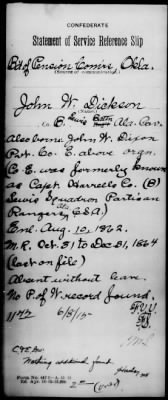 CONFEDERATE
Statement of Service Reference Slip
Bd of Pension Comrs, Okla.
(Source of communication.)
John W. Dickson
(Name.)
Co B, Lewis' Battn Ala. Cav.
Also borne John W. Dixon
Pvt. Co E. above orgn.
Co E. was formerly known
as Capt. Harrell's Co. (B)
Lewis Squadron Partisan
Rangers, C.S.A.)
Enl. Aug. 10, 1862.
M.R. Oct. 31 to Dec 31, 1864
(last on file)
Absent without leave.
No P. of W. record found.
6/8/15
Nothing additional found.
Form No.